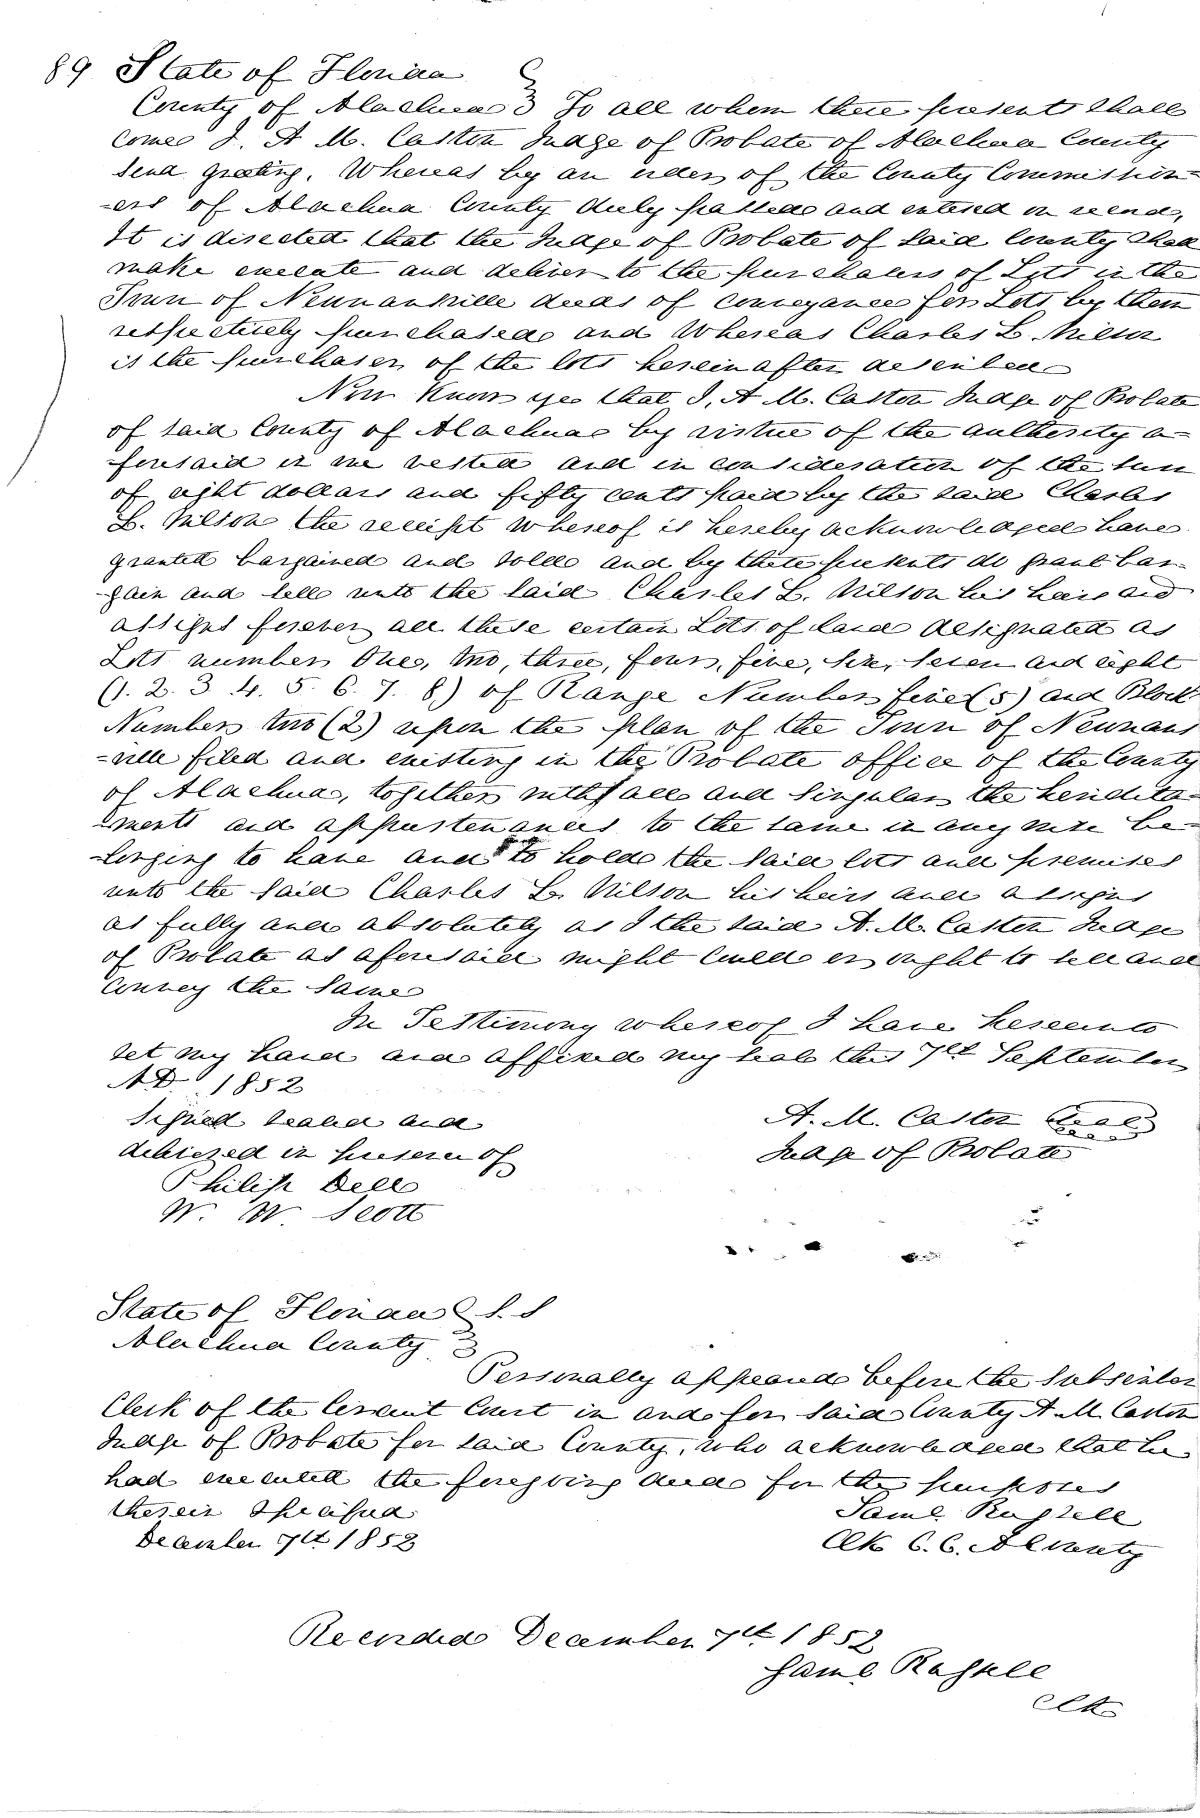 89 State of Florida
County of Alachua } To all whom these presents shall
come I. A. M. Caston Judge of Probate of Alachua County
send greeting. Whereas by an order of the County Commission=
=ers of Alachua County duly passed and entered on record,
It is directed that the Judge of Probate of said County shall
make execute and deliver to the purchasers of Lots in the
Town of Newnansville deeds of conveyance for Lots by them
respectively purchased and Whereas Charles L. Wilson
is the purchaser of the lots herein after described
Now Know ye that I, A. M. Caston Judge of Probate
of said County of Alachua by virtue of the authority a=
foresaid in me vested and in consideration of the sum
of eight dollars and fifty cents paid by the said Charles
L. Wilson the receipt whereof is hereby acknowledged have
granted bargained and sold and by these presents do grant bar-
-gain and sell unto the said Charles L. Wilson his heirs and
assigns forever all those certain Lots of land designated as
Lots number One, two, three, four, five, six, seven and eight
(1. 2. 3 4. 5. 6. 7. 8) of Range Number five (5) and Block
Number two (2) upon the plan of the Town of Newnans
=ville filed and existing in the Probate office of the County
of Alachua, together with all and singular the heridita=
=ments and appurtenances to the same in any wise be=
-longing to have and to hold the said lots and premises
unto the said Charles L. Wilson his heirs and assigns
as fully and absolutely as I the said A. M. Caston Judge
of Probate as aforesaid might could or ought to sell and
convey the same
In Testimony whereof I have hereunto
set my hand and affixed my seal this 7th September
A.D. 1852
Signed sealed and
A. M. Caston Seal
delivered in presence of
Judge of Probate
Philip Dell
W. W. Scott
State of Florida } S. S
Alachua County }
Personally appeared before the Subscriber
Clerk of the Circuit Court in and for said County A. M. Caston
Judge of Probate for said County, who acknowledged that he
had executed the foregoing deed for the purposes
therein specified
Saml Russell
December 7th 1852
Clk C. C. A County
Recorded December 7th 1852
Saml Russell
Clk